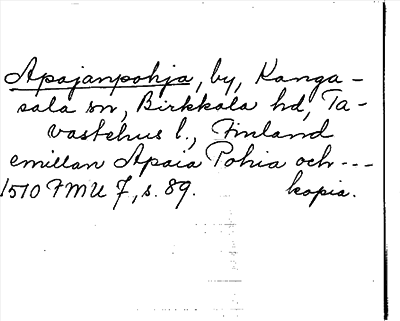 Apajanpohja, by, Kanga-
sala sn, Birkkala hd, Ta-
vastehus l., Finland
emillan Apaia Pohia och ---
1510 FMU 7, s. 89. kopia.